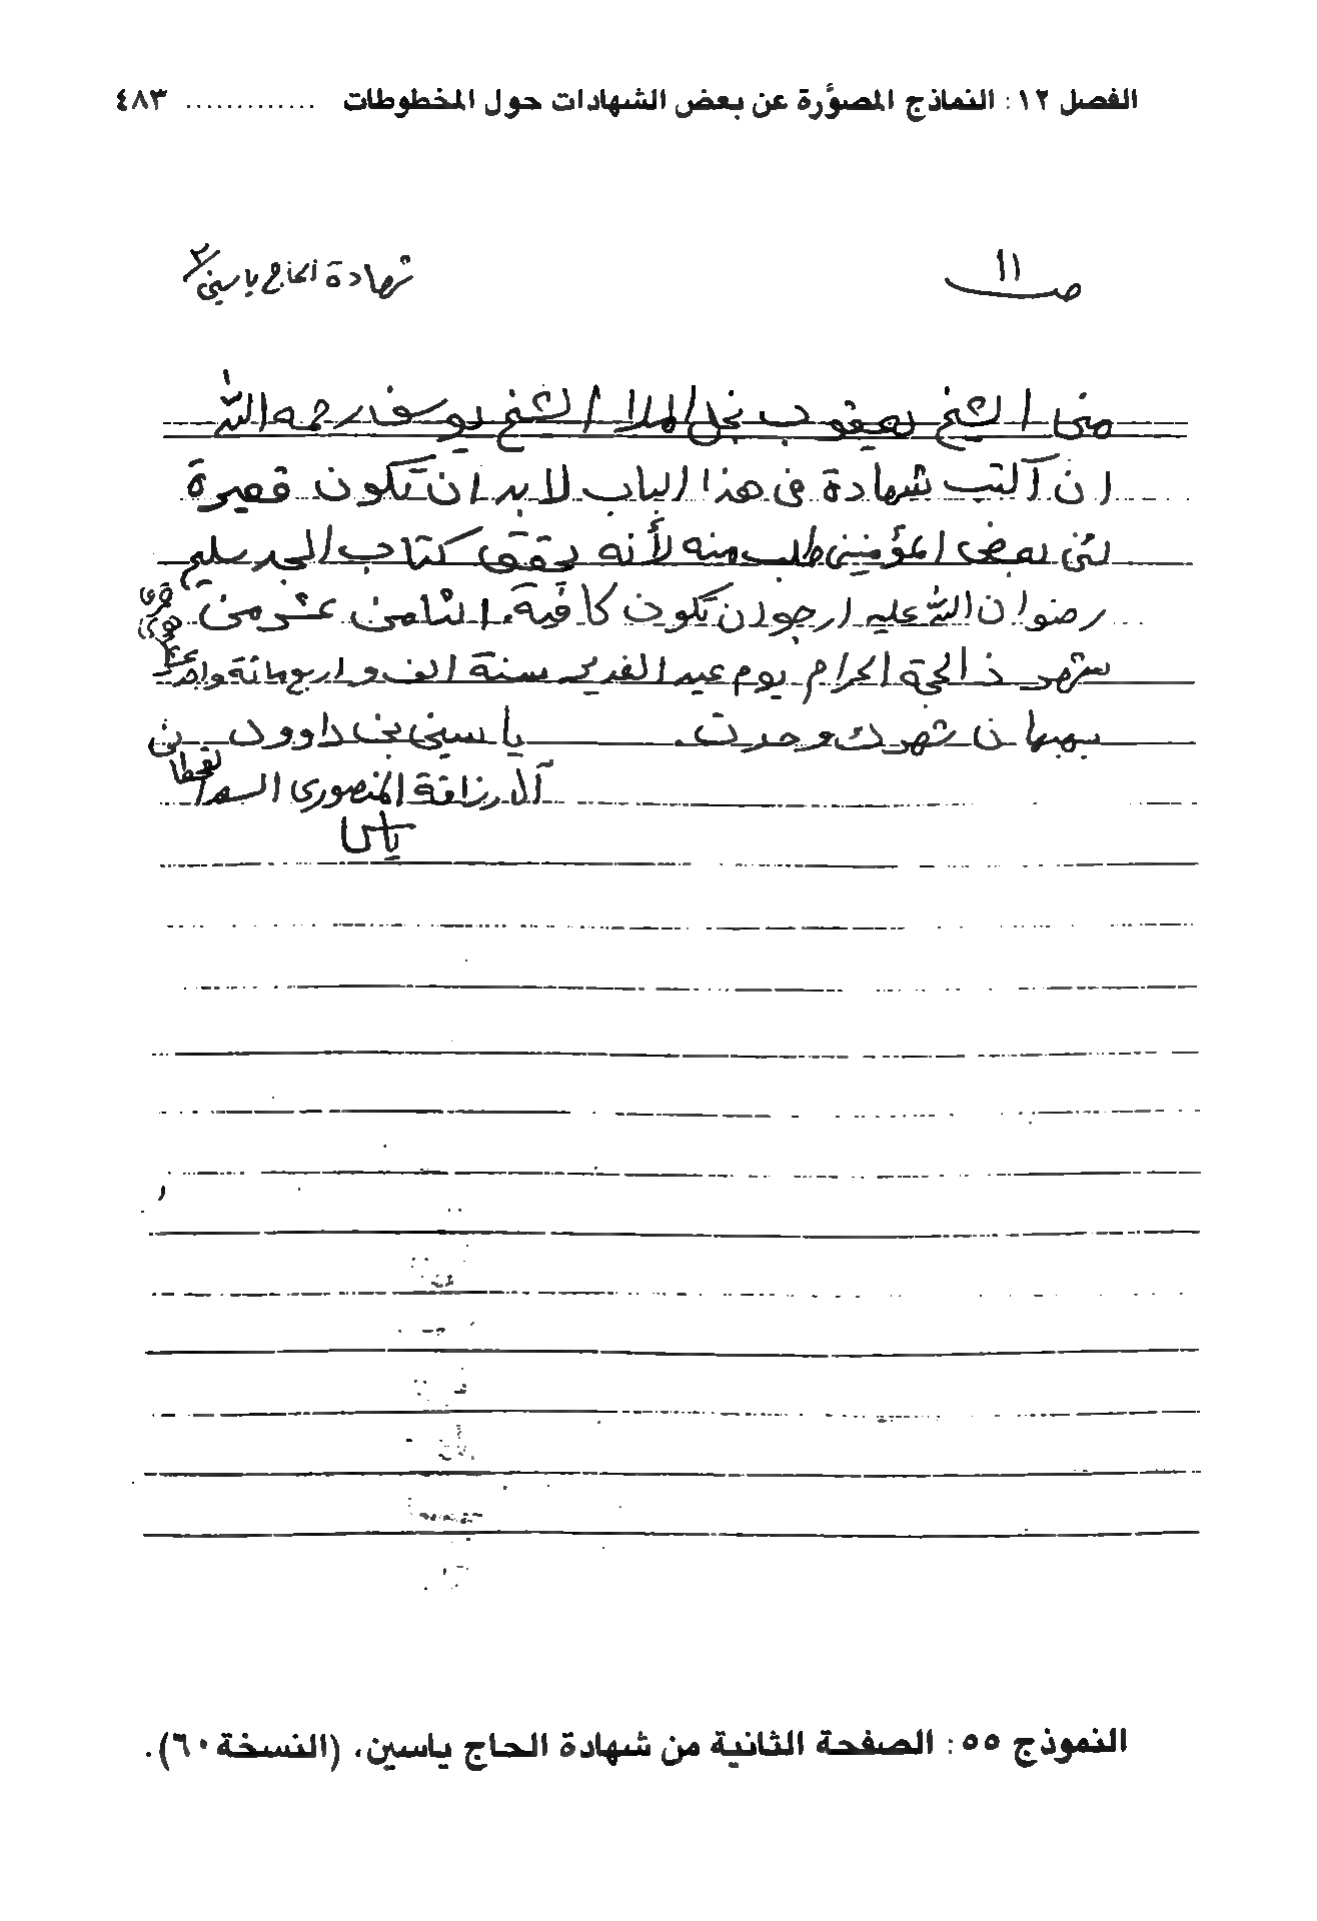 الفصل ١٢: النماذج المصوَّرة عن بعض الشهادات حول المخطوطات ............. ٤٨٣
ص ١١
شهادة الحاج ياسين/٢
مني الشيخ يعقوب نجل الملا الشيخ يوسف رحمه الله
ان اكتب شهادة في هذا الباب لا بد ان تكون قصيرة
لئن بعض المؤمنين طلب منه لأنه يحقق كتاب الجد سليم
رضوان الله عليه ارجو ان تكون كافية. الثامن عشر من
شهر ذ الحجة الحرام يوم عيد الغدير سنة الف و اربع مائة
بهبهان شهرك وحدت. ياسين بن داوود بن
آلا رزاقة المنصوري
النموذج ٥٥: الصفحة الثانية من شهادة الحاج ياسين، (النسخة ٦٠).